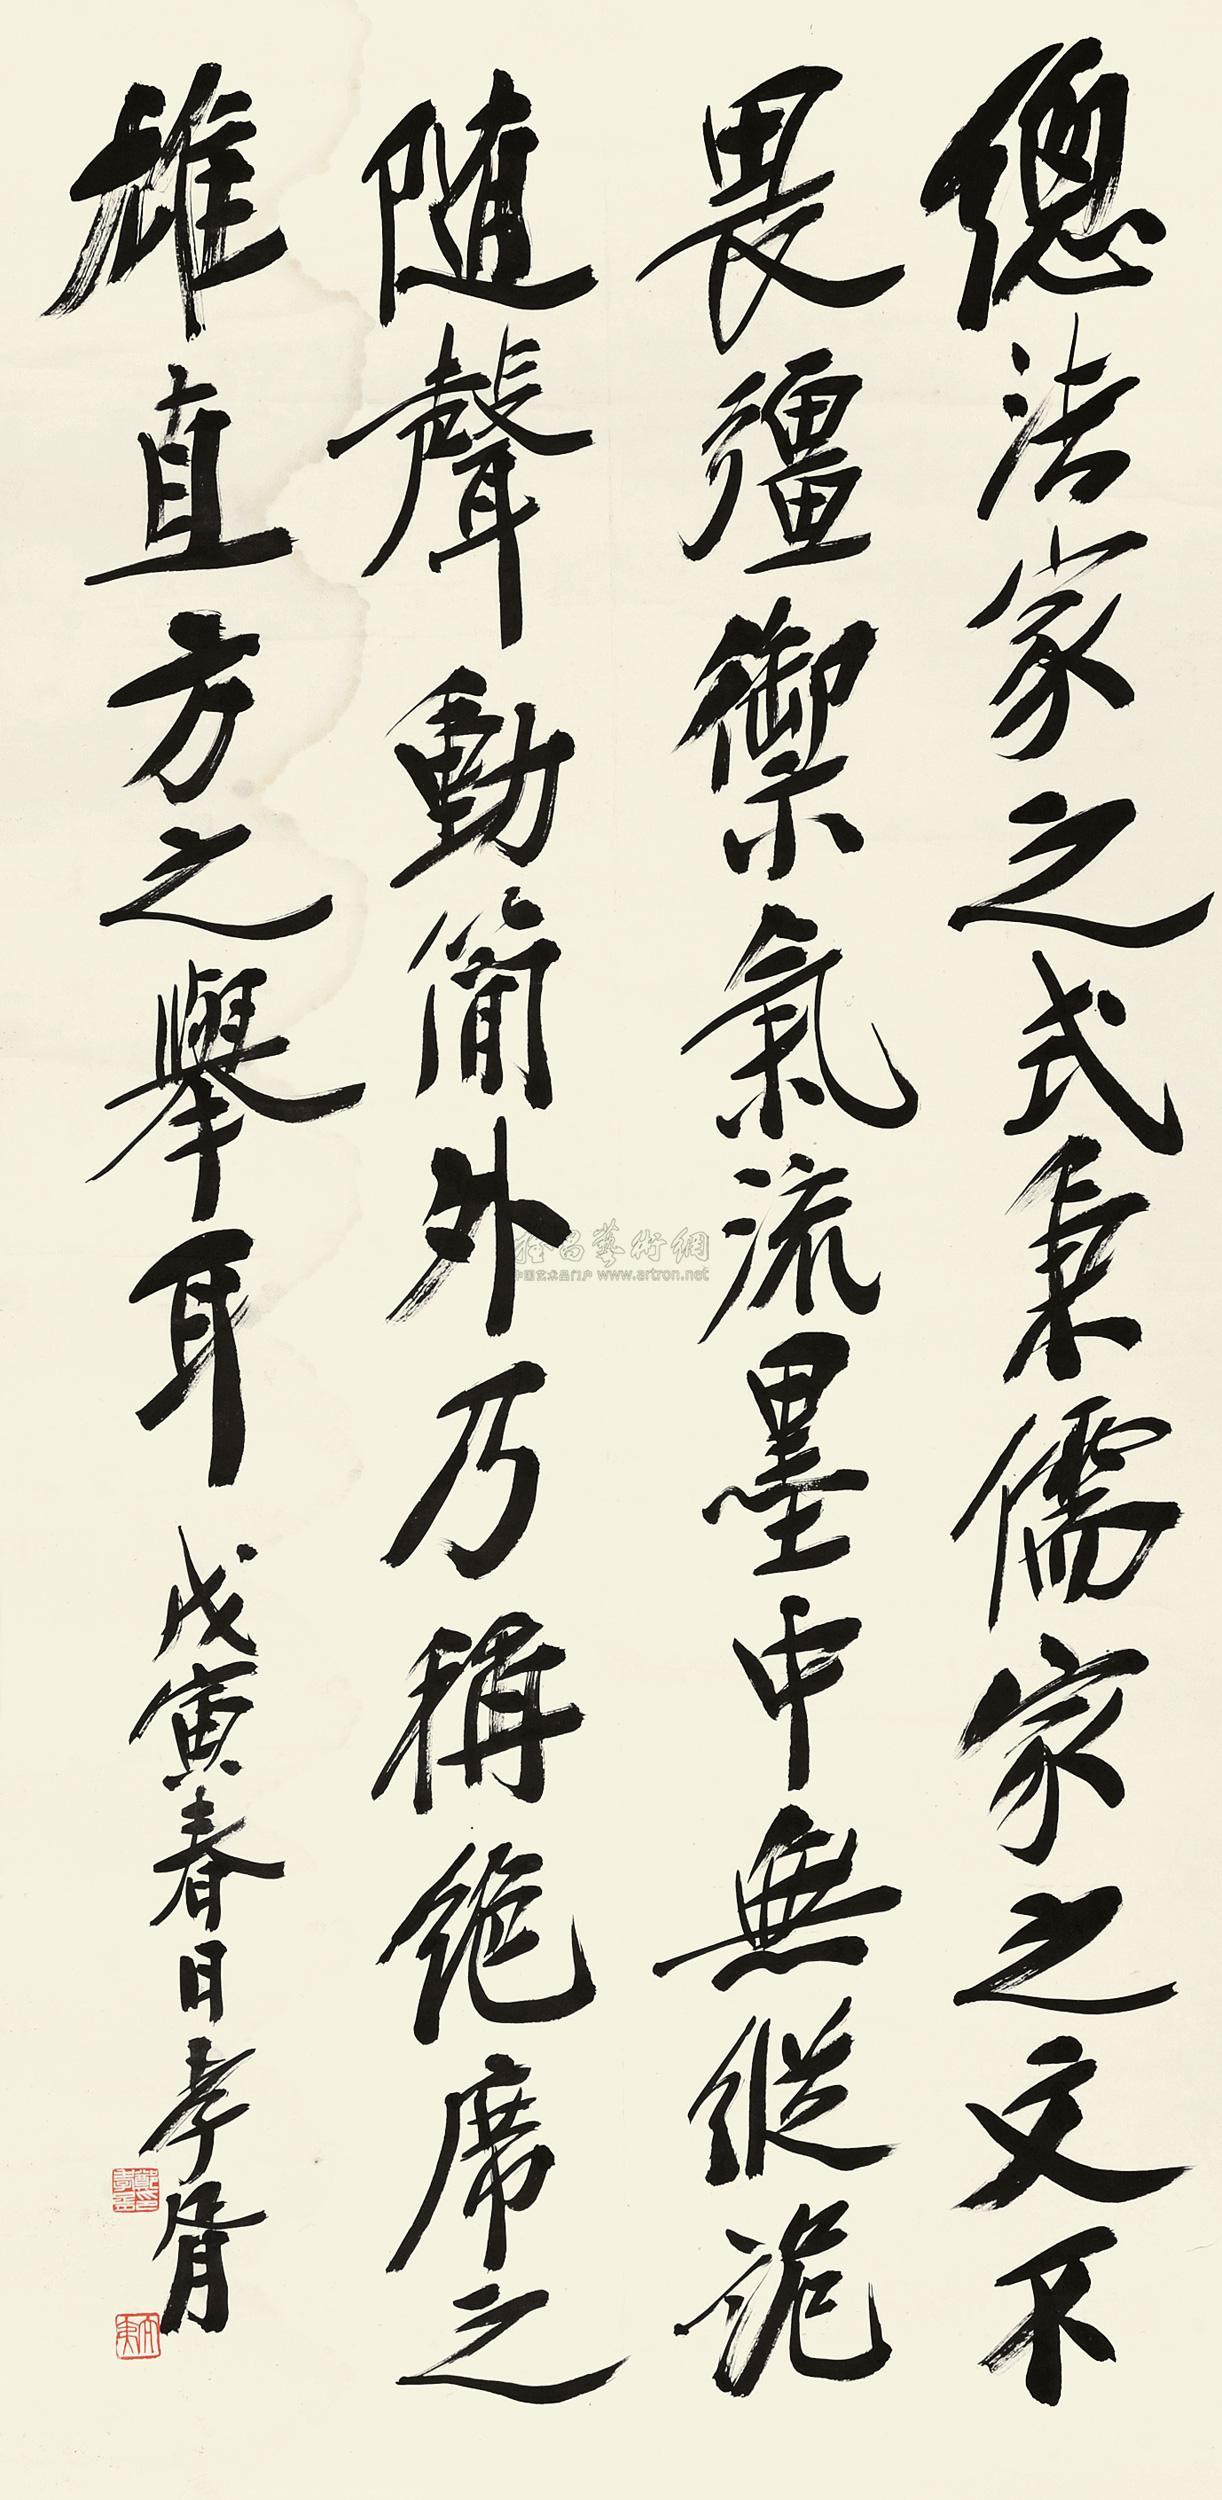 總法家之式秉儒家之文不
畏彊禦氣流墨中無縱詭
随聲動簡外乃稱絶席之
雄直方之舉耳 戊寅春日孝胥
雅昌藝術網
中国艺术品门户 www.artron.net